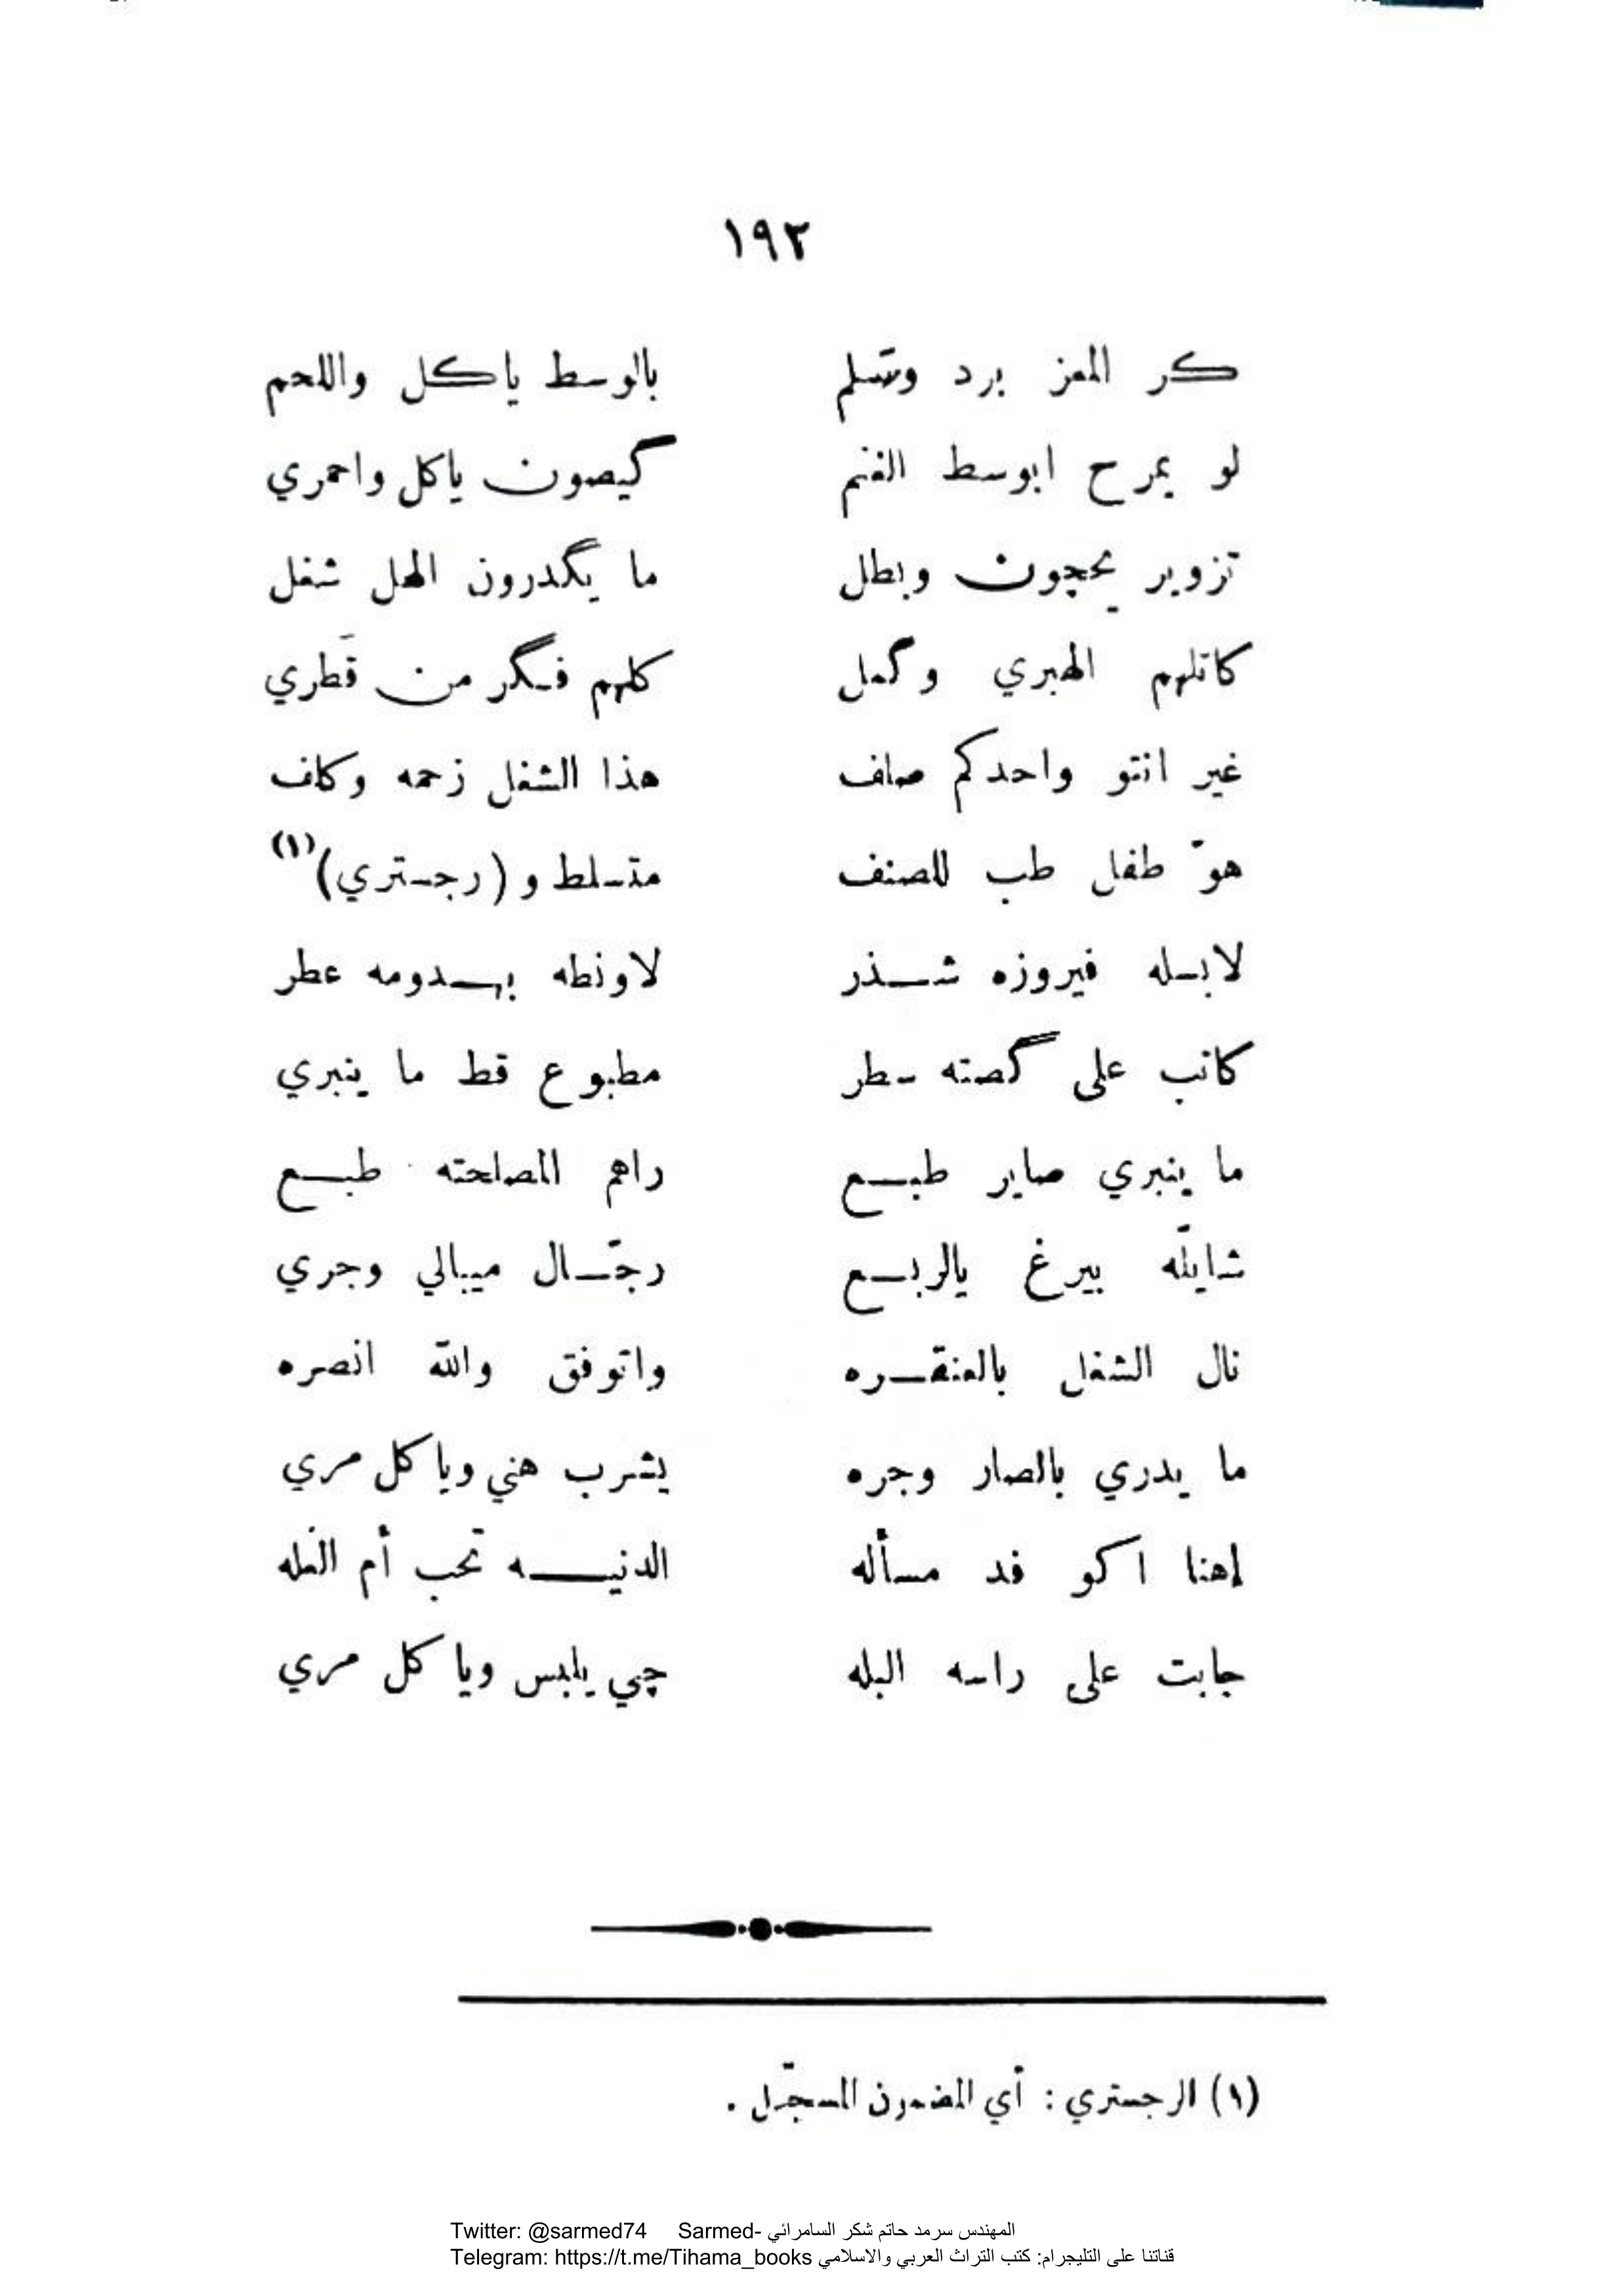 ١٩٢
كر المعز برد وتسلم بالوسط ياكل واللحم
لو يمرح ابوسط الغنم گيصون ياكل واحمري
تزوير يحچون وبطل ما يگدرون الهل شغل
كاتلهم الهبري وگمل كلهم فگر من قطري
غير انتو واحدكم صاف هذا الشغل زحمه وكاف
هوّ طفل طب للصنف متسلط و (رجستري)(١)
لابسله فيروزه شذر لاونطه بهدومه عطر
كاتب على گصته سطر مطبوع قط ما ينبري
ما ينبري صاير طبع راهم المصلحته طبع
شايلّه بيرغ يالربع رجّال ميبالي وجري
نال الشغل بالعنقره واتوفق والله انصره
ما يدري بالصار وجره يشرب هني وياكل مري
إهنا اكو فد مسأله الدنيه تحب أم الغله
جابت على راسه البله چي يلبس وياكل مري
(١) الرجستري : أي المضمون المسجّل .
Twitter: @sarmed74 Sarmed- المهندس سرمد حاتم شكر السامرائي
Telegram: https://t.me/Tihama_books قناتنا على التليجرام: كتب التراث العربي والاسلامي